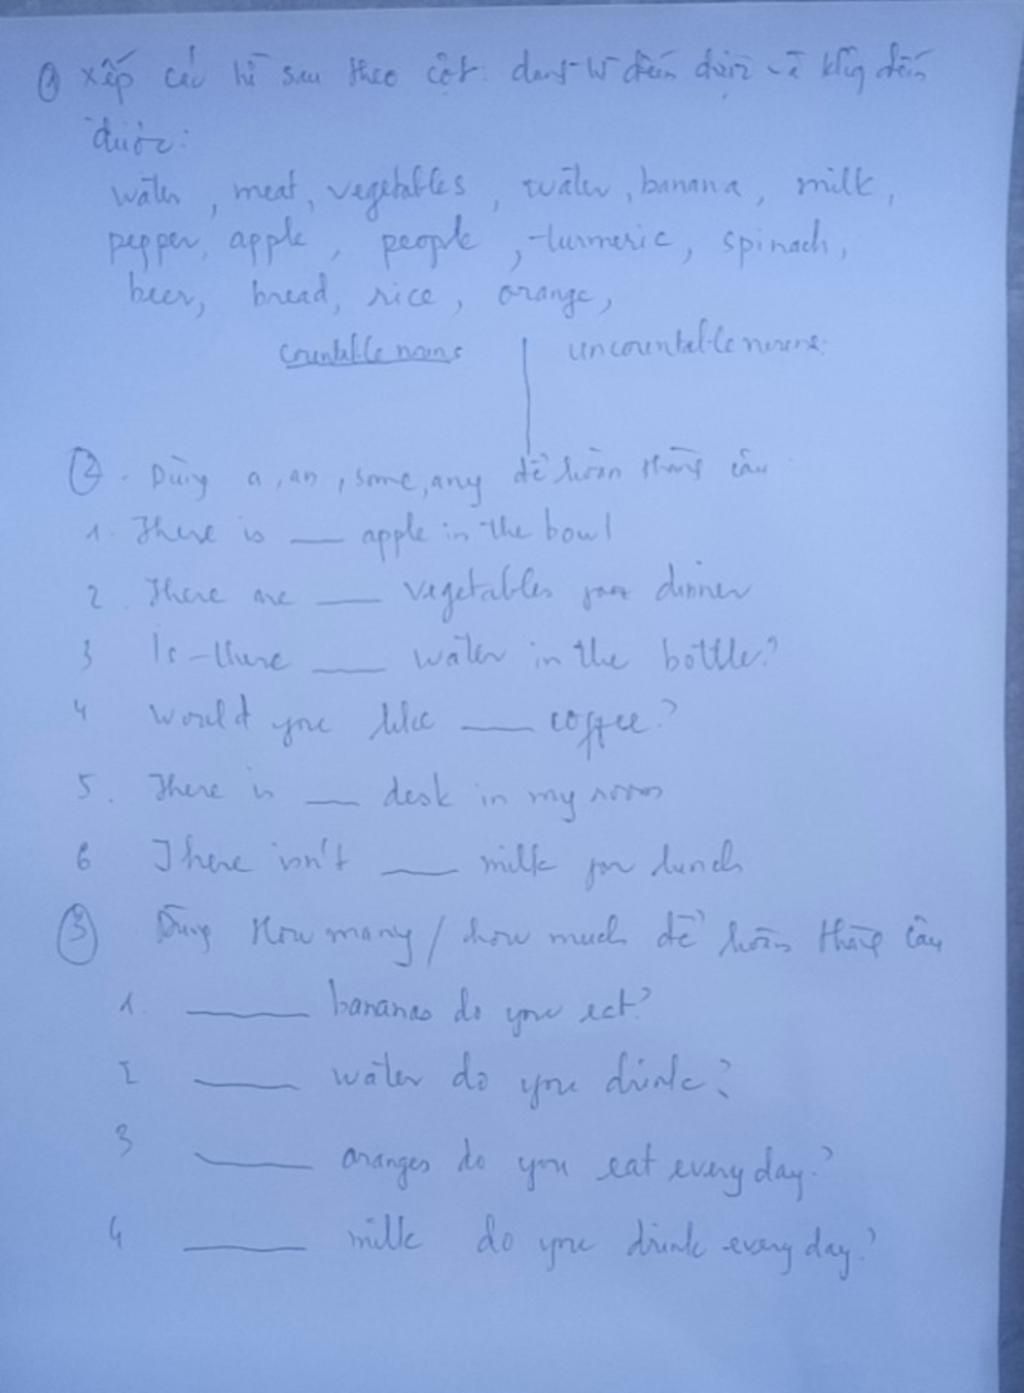 ① Xếp các từ sau theo cột: danh từ đếm được và không đếm
được:
water, meat, vegetables, water, banana, milk,
pepper, apple, people, turmeric, spinach,
beer, bread, rice, orange,
countable nouns | uncountable nouns:
② . Dùng a, an, some, any để hoàn thành câu
1. There is ___ apple in the bowl
2. There are ___ vegetables for dinner
3 Is there ___ water in the bottle?
4 Would you like ___ coffee?
5. There is ___ desk in my room
6 There isn't ___ milk for lunch
③ Dùng How many / how much để hoàn thành câu
1. ___ bananas do you eat?
2 ___ water do you drink?
3 ___ oranges do you eat every day?
4 ___ milk do you drink every day?